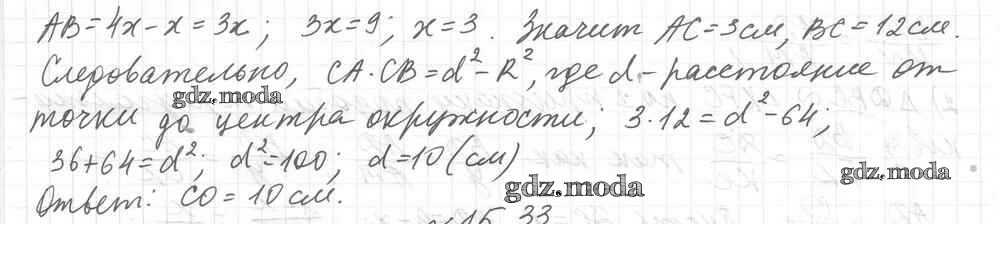 AB=4x-x=3x; 3x=9; x=3. Значит AC=3см, BC=12см.
Следовательно, CA·CB=d²-R², где d-расстояние от
gdz.moda
точки до центра окружности; 3·12=d²-64;
36+64=d²; d²=100; d=10(см)
gdz.moda
gdz.moda
Ответ: CO=10см.